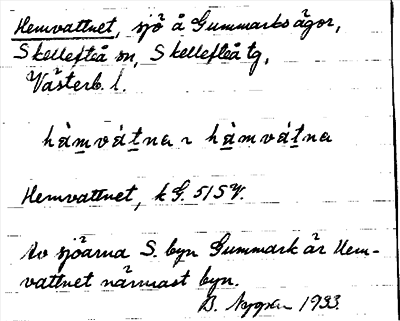 Hemvattnet, sjö å Gummarks ägor,
Skellefteå sn, Skellefteå tg,
Västerb. l.
hàm̲vát̲na ~ hà̲m̲vát̲na
Hemvattnet, k G. 51 S V.
Av sjöarna S. byn Gummark är Hem-
vattnet närmast byn.
B. 1933.